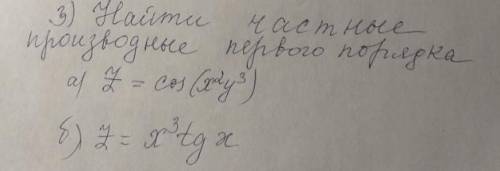 3) Найти частные
производные первого порядка
а) Z = cos(x²y³)
б) Z = x³tg x